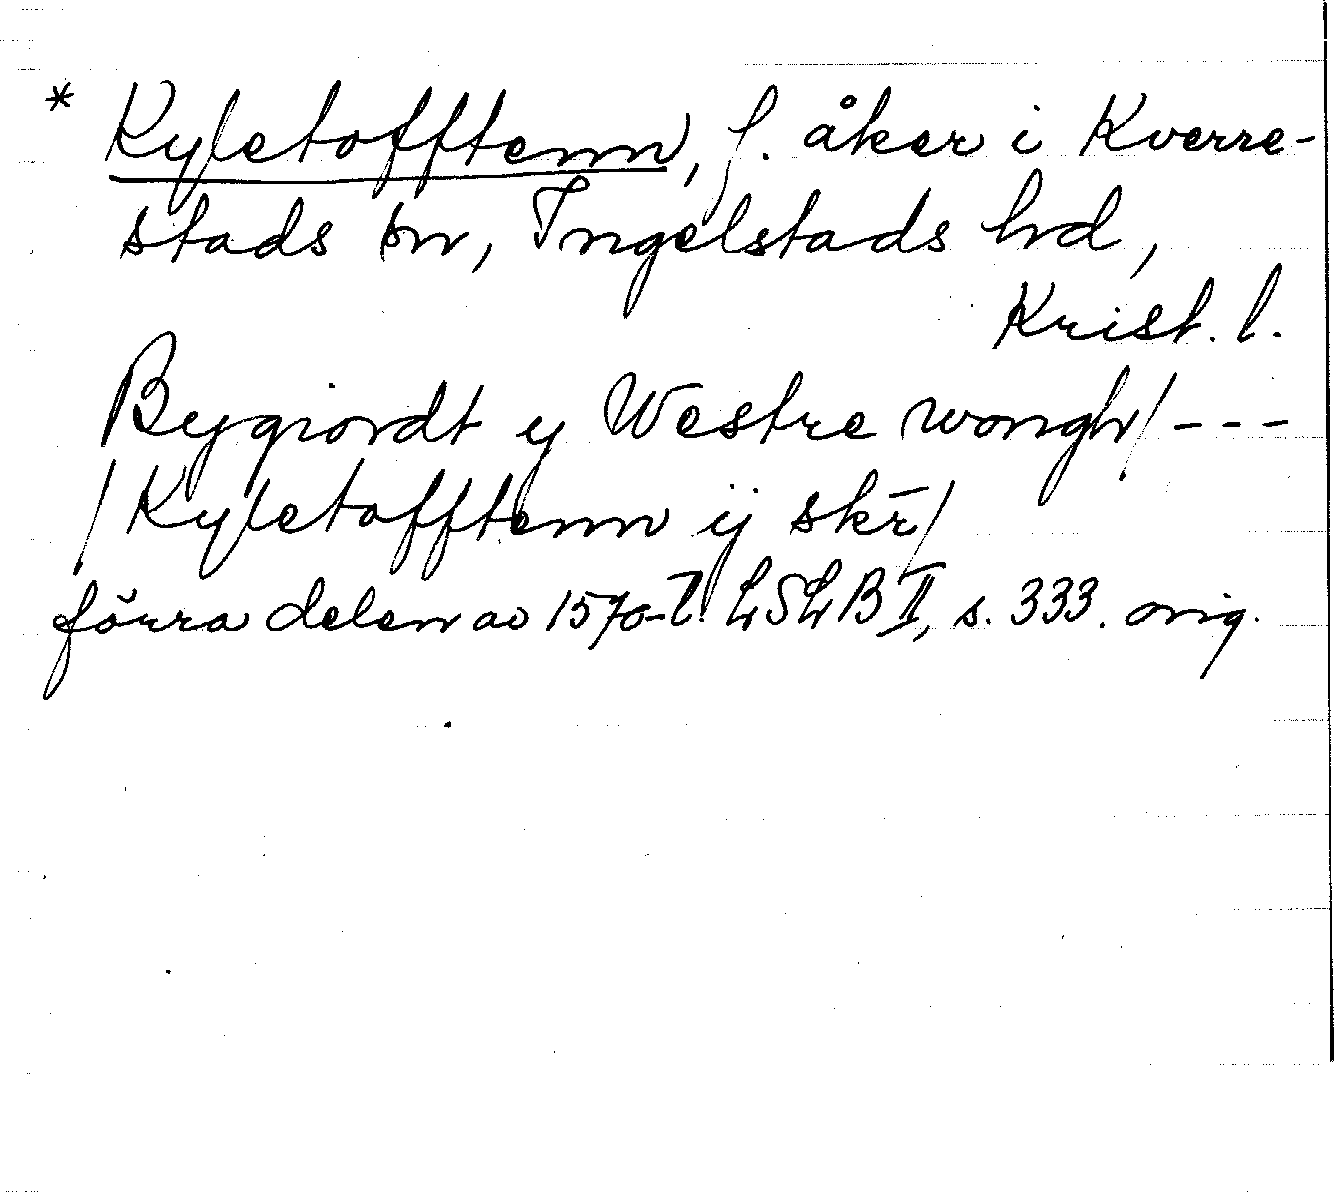 * Kyletofftenn, f. åker i Kverre-
stads sn, Ingelstads hd,
Krist. l.
Bygiordt y Westre wongh/ - - -
/ Kyletofftenn ij skr̄/
förra delen av 1570-t. LSLB II, s. 333. orig.